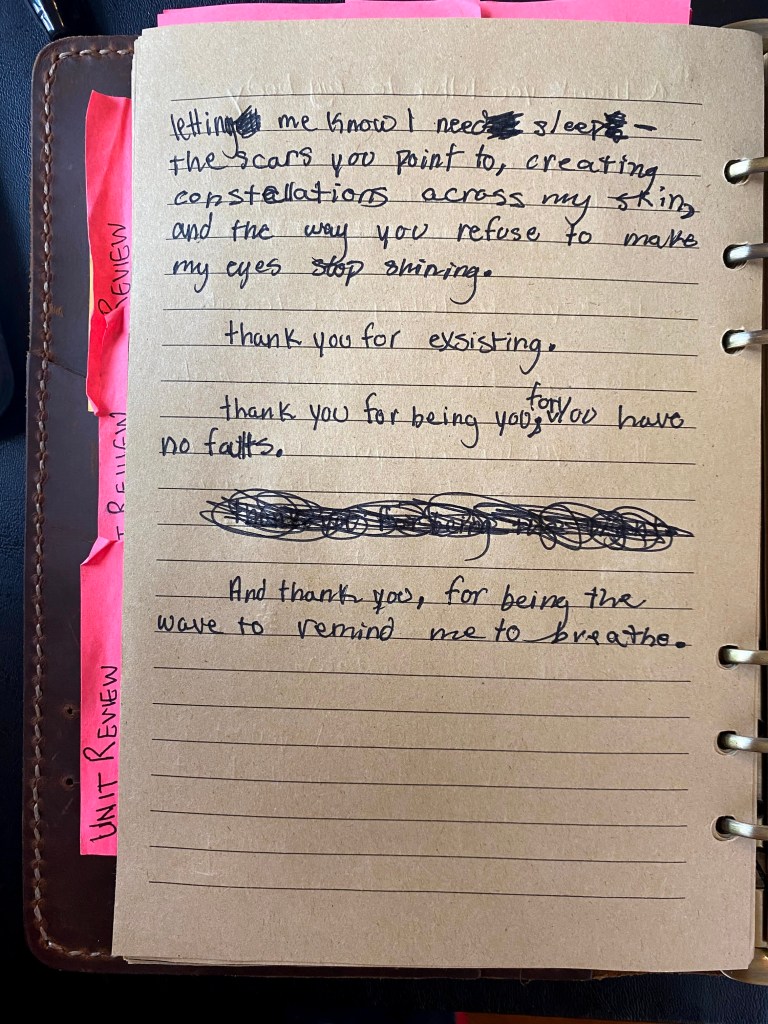 letting me know I need sleep –
the scars you point to, creating
constellations across my skin,
and the way you refuse to make
my eyes stop shining.
thank you for exsisting.
thank you for being you, for you have
no faults.
And thank you, for being the
wave to remind me to breathe.
REVIEW
T REVIEW
UNIT REVIEW